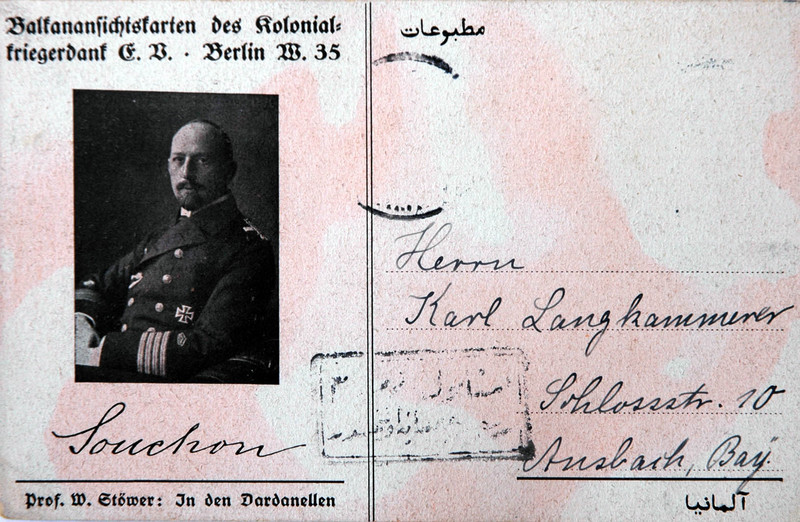 Balkanansichtskarten des Kolonial-
kriegerdank E. V. · Berlin W. 35
Souchon
Prof. W. Stöwer: In den Dardanellen
مطبوعات
Herrn
Karl Langkammerer
Schlossstr. 10
Ansbach, Bay.
آلمانيا